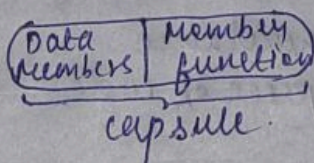 Data Member
Members function
capsule.